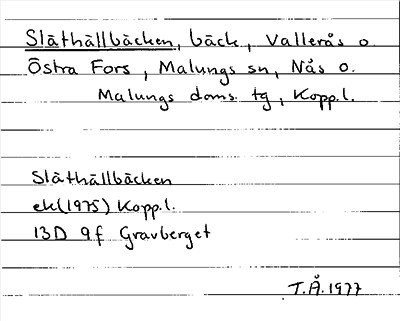 Släthällbäcken, bäck, Vallerås o.
Östra Fors, Malungs sn, Nås o.
Malungs doms. tg, Kopp.l.
Släthällbäcken
ek(1975) Kopp.l.
13D 9f Gravberget
T.Å.1977